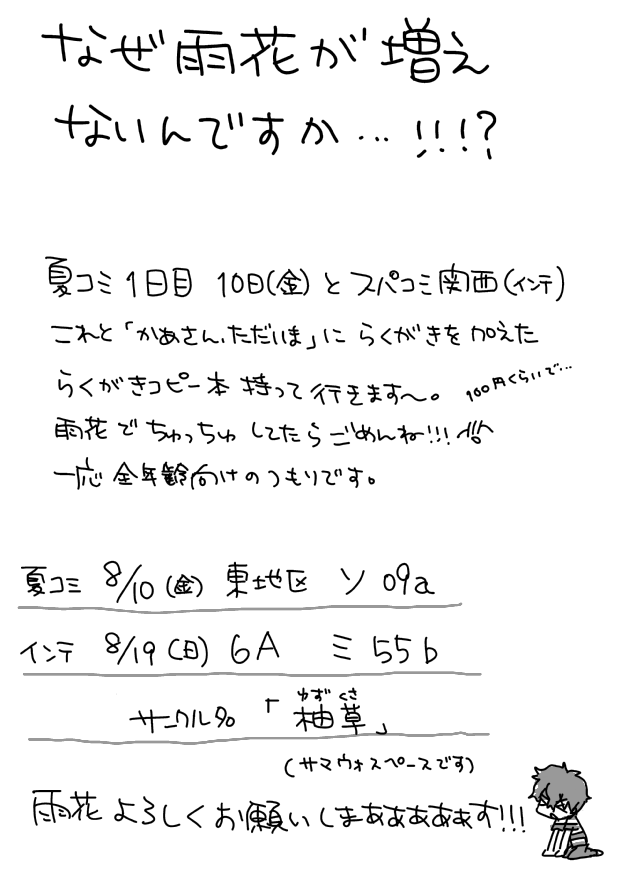 なぜ雨花が増え
ないんですか…!!!?
夏コミ1日目 10日(金)とスパコミ関西(インテ)
これと「かあさん、ただいま」にらくがきを加えた
らくがきコピー本持って行きます〜。 100円くらいで…
雨花でちゅっちゅしてたらごめんね!!!
一応全年齢向けのつもりです。
夏コミ 8/10(金) 東地区 ソ09a
インテ 8/19(日) 6A ミ55b
ゆず くさ
サークル名「柚草」
(サマウォスペースです)
雨花よろしくお願いしまぁぁぁぁぁす!!!